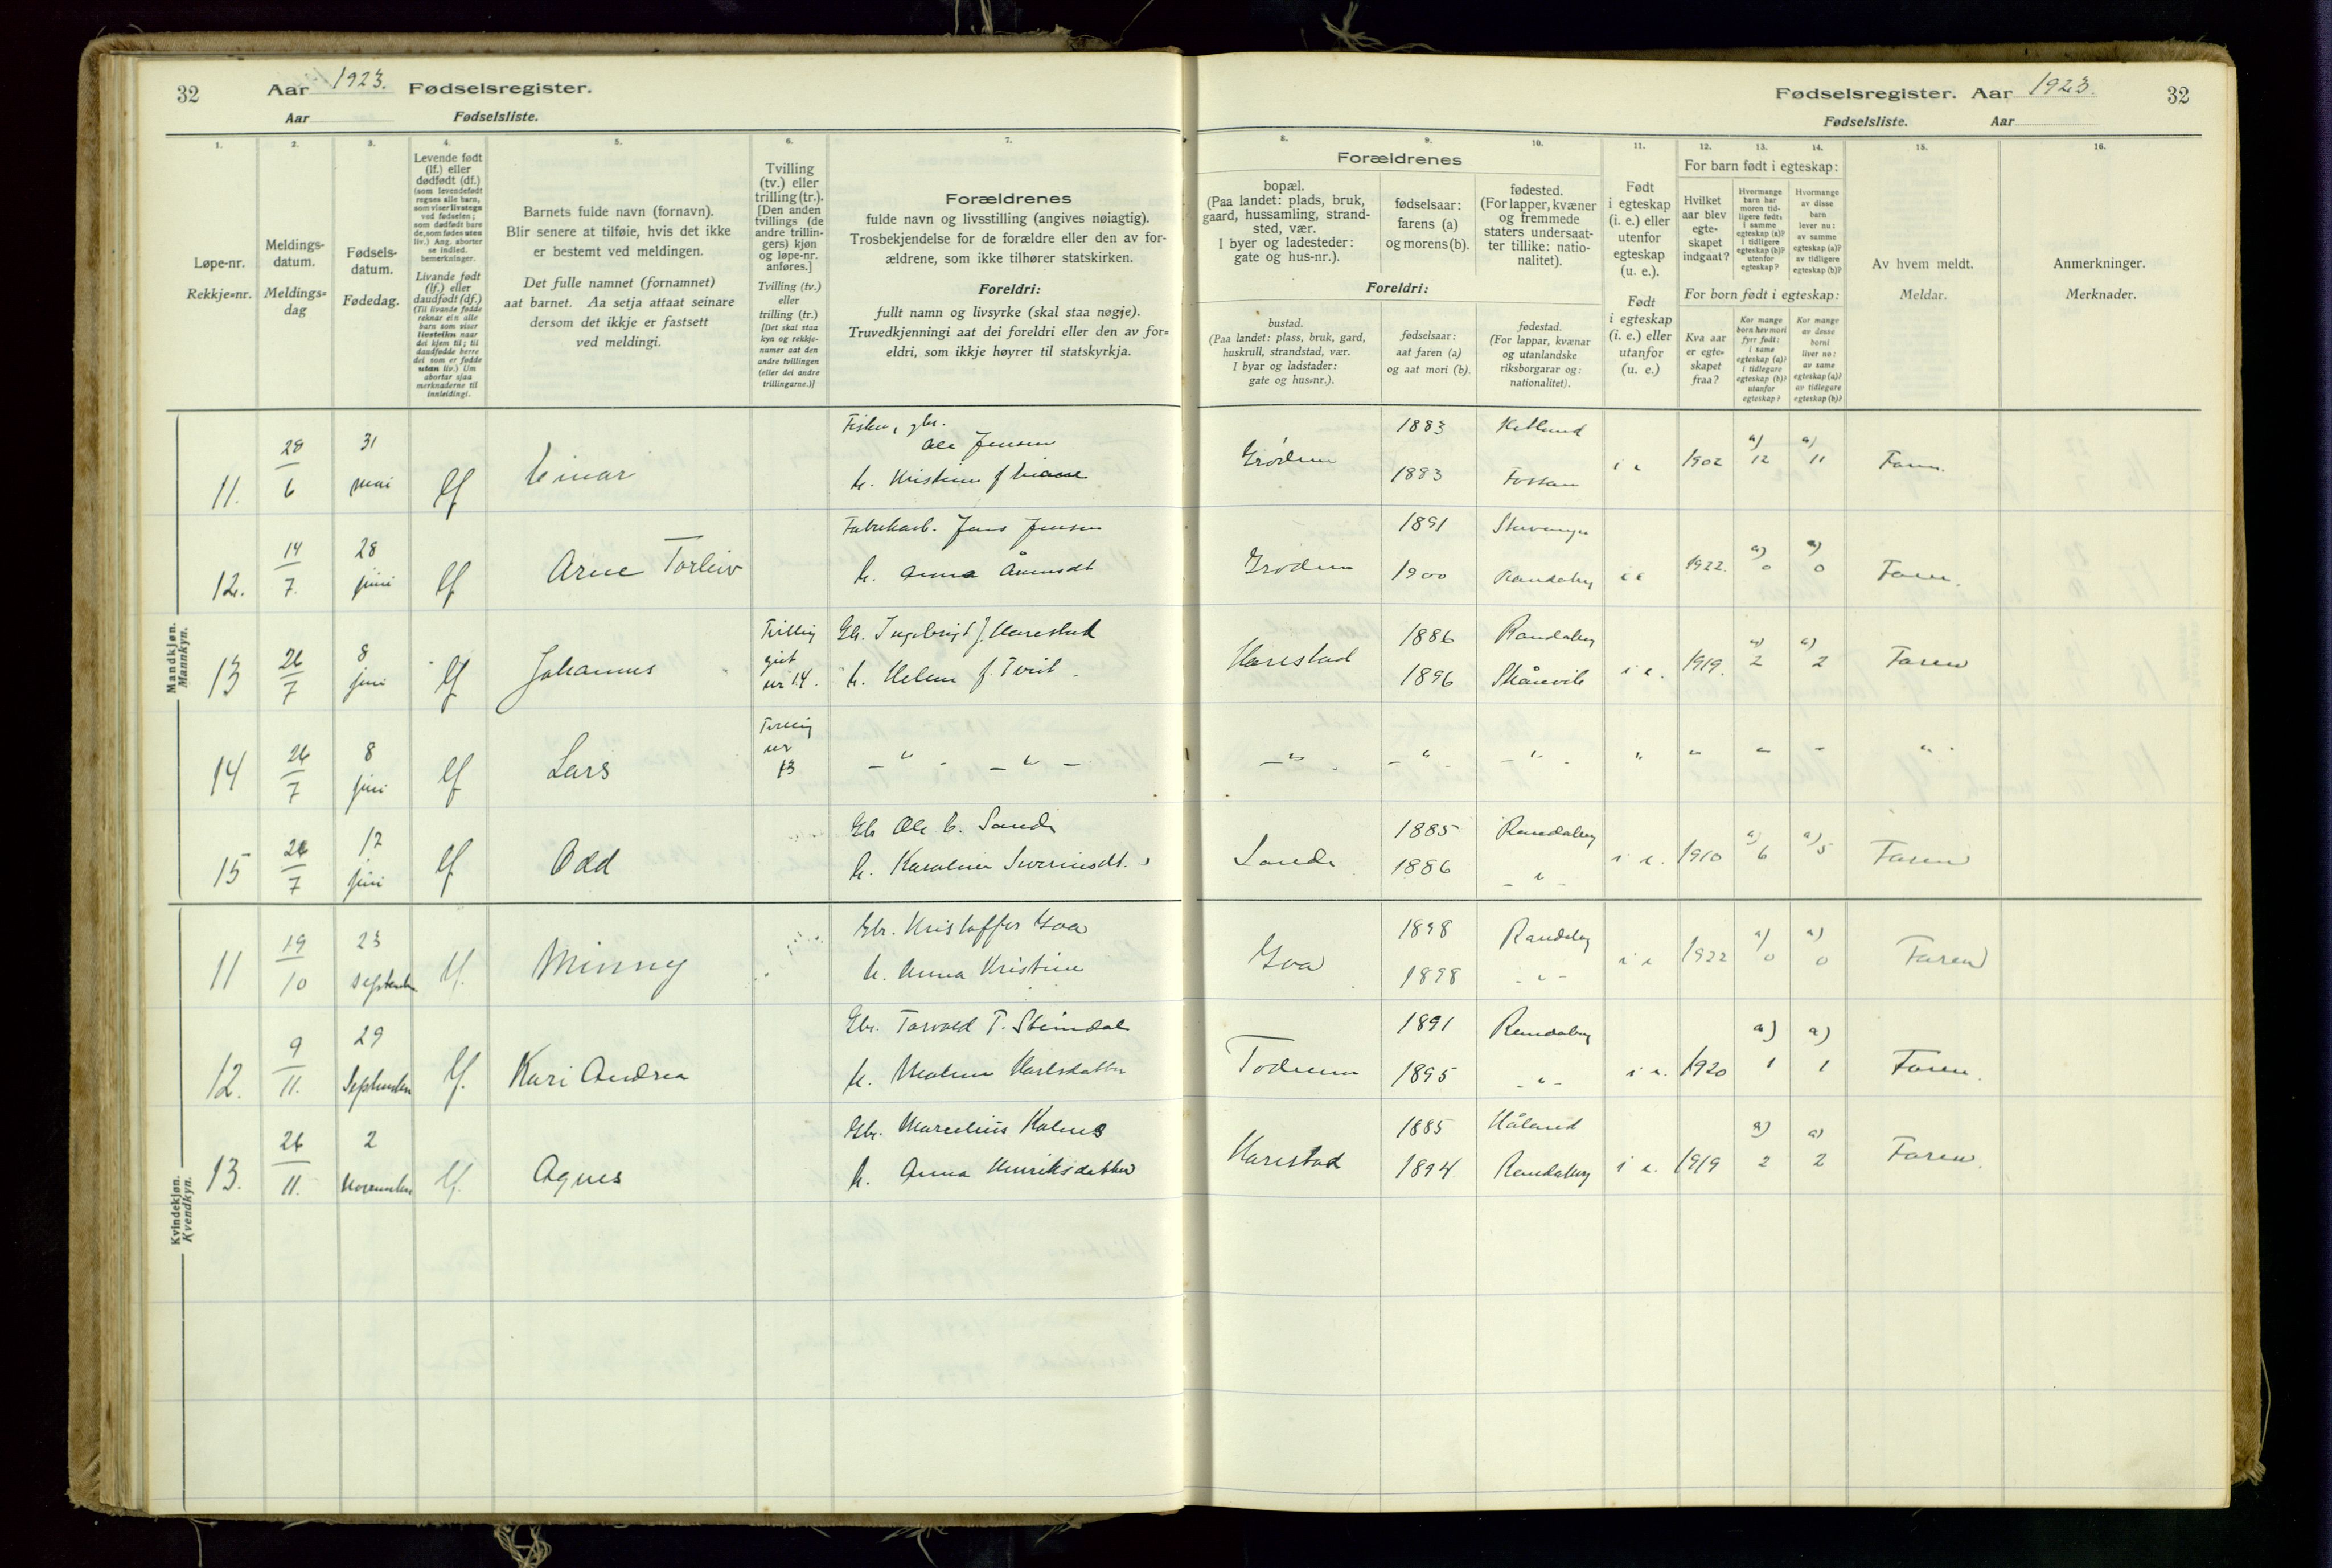 32 Aar 1923. Fødselsregister.
Aar Fødselsliste.
Fødselsregister. Aar 1923. 32
Fødselsliste. Aar
1. 2. 3. 4. 5. 6. 7.
8. 9. 10. 11. 12. 13. 14. 15. 16.
Løpe-nr.
Rekkje-nr.
Meldings-
datum.
Meldings-
dag
Fødsels-
datum.
Fødedag.
Levende født
(lf.) eller
dødfødt (df.)
(som levendefødt
regnes alle barn,
som viser livstegn
ved fødselen;
som dødfødt bare
de, som fødes uten
liv.) Ang. aborter
se indled.
bemerkninger.
Livande født
(lf.) eller
daudfødt (df.)
(Til livande fødde
reknar ein alle
barn som viser
livsteikn naar
dei kjem til; til
daudfødde berre
dei som er fødde
utan liv.) Um
abortar sjaa
merknaderne til
innleidingi.
Barnets fulde navn (fornavn).
Blir senere at tilføie, hvis det ikke
er bestemt ved meldingen.
Det fulle namnet (fornamnet)
aat barnet. Aa setja attaat seinare
dersom det ikkje er fastsett
ved meldingi.
Tvilling
(tv.) eller
trilling (tr.).
[Den anden
tvillings (de
andre trillin-
gers) kjøn
og løpe-nr.
anføres.]
Tvilling (tv.)
eller
trilling (tr.)
[Det skal staa
kyn og rekkje-
numer aat den
andre tvillingen
(eller dei andre
trillingarne.)]
Forældrenes
fulde navn og livsstilling (angives nøiagtig).
Trosbekjendelse for de forældre eller den av for-
ældrene, som ikke tilhører statskirken.
Foreldri:
fullt namn og livsyrke (skal staa nøgje).
Truvedkjenningi aat dei foreldri eller den av for-
eldri, som ikkje høyrer til statskyrkja.
Forældrenes
bopæl.
(Paa landet: plads, bruk,
gaard, hussamling, strand-
sted, vær.
I byer og ladesteder:
gate og hus-nr.).
fødselsaar:
farens (a)
og morens (b).
fødested.
(For lapper, kvæner
og fremmede
staters undersaat-
ter tillike: natio-
nalitet).
Foreldri:
bustad.
(Paa landet: plass, bruk, gard,
huskrull, strandstad, vær.
I byar og ladstader:
gate og hus-nr.).
fødselsaar:
aat faren (a)
og aat mori (b).
fødestad.
(For lappar, kvænar
og utanlandske
riksborgarar og:
nationalitet).
Født
i egteskap
(i. e.) eller
utenfor
egteskap
(u. e.).
Født
i egteskap
(i. e.) eller
utanfor
(u. e.)
For barn født i egteskap:
Hvilket
aar blev
egte-
skapet
indgaat?
Hvormange
barn har
moren tid-
ligere født:
i samme
egteskap (a)?
i tidligere
egteskap (b)?
utenfor
egteskap?
Hvormange
av disse
barn
lever nu:
av samme
egteskap (a)?
av tidligere
egteskap (b)?
For born født i egteskap:
Kva aar
er egte-
skapet
fraa?
Kor mange
born hev mori
fyrr født:
i same
egteskap (a)?
i tidlegare
egteskap (b)?
utanfor
egteskap?
Kor mange
av desse
borni
liver no:
av same
egteskap (a)?
av tidlegare
egteskap (b)?
Av hvem meldt.
Meldar.
Anmerkninger.
Merknader.
Mandkjøn.
Mannkyn.
11. 28/6 31 mai lf Einar
Ole Jensen
Grödem 1883 1883 Fossan i e 1902 a) 12 a) 11 Faren.
12. 14/7. 28 juni lf Arne Torleiv
Fabrikarb. Jens Jensen
h. Anna
Grödem 1891 1900 Stavanger Randaberg i e 1922. a) 0 a) 0 Faren.
13 26/7 8 juni lf Johannes
Tvilling gut nr 14.
Gbr. Ingebrigt J. Harestad
h. Helene f. Tveit
Harestad 1886 1896 Randaberg Skånevik i e. 1919. a) 2 a) 2 Faren
14 26/7 8 juni lf Lars
Tvilling nr 13
— " — — " —
15 26/7 12 juni lf Odd
Gbr Ole E. Sande
h. Karoline Sverinsdt.
Sande 1885 1886 Randaberg — " — i e. 1910 a) 6 a) 5 Faren
Kvindekjøn.
Kvendkyn.
11 19/10 23 september lf. Minny
Gbr. Kristoffer Goa
h. Anna Kristine
Goa 1898 1898 Randaberg - " - i e 1922 a) 0 a) 0 Faren
12. 9/11. 29 September lf. Kari Andrea
Gbr. Torvald T. Steindal
h. Malene Karlsdatter
Todnem 1891 1895 Randaberg - " - i e. 1920 a) 1 a) 1 Faren.
13. 26/11. 2 November lf. Agnes
Gbr. Marselius Kalnes
h. Anna Henriksdatter
Harestad 1885 1894 Håland Randaberg i e. 1919 a) 2 a) 2 Faren.